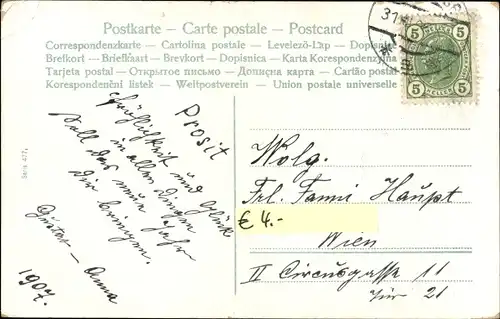 Postkarte – Carte postale – Postcard
Correspondenzkarte – Cartolina postale – Levelező-Lap – Dopisnice
Brefkort – Briefkaart – Brevkort – Dopisnica – Karta Korespondenzyjna
Tarjeta postal – Открытое письмо – Дописна карта – Cartão postal
Korespondenční listek – Weltpostverein – Union postale universelle
5 5
HELLER HELLER
5 5
31
Serie 477.
Prosit
Fröhlichkeit und Glück
in allen Dingen
Soll das neue Jahr
Dir bringen.
Gustav – Anna
1907.
Wolg.
Frl. Fanni Haupt
€ 4.-
Wien
II Circusgasse 11
Tür 21